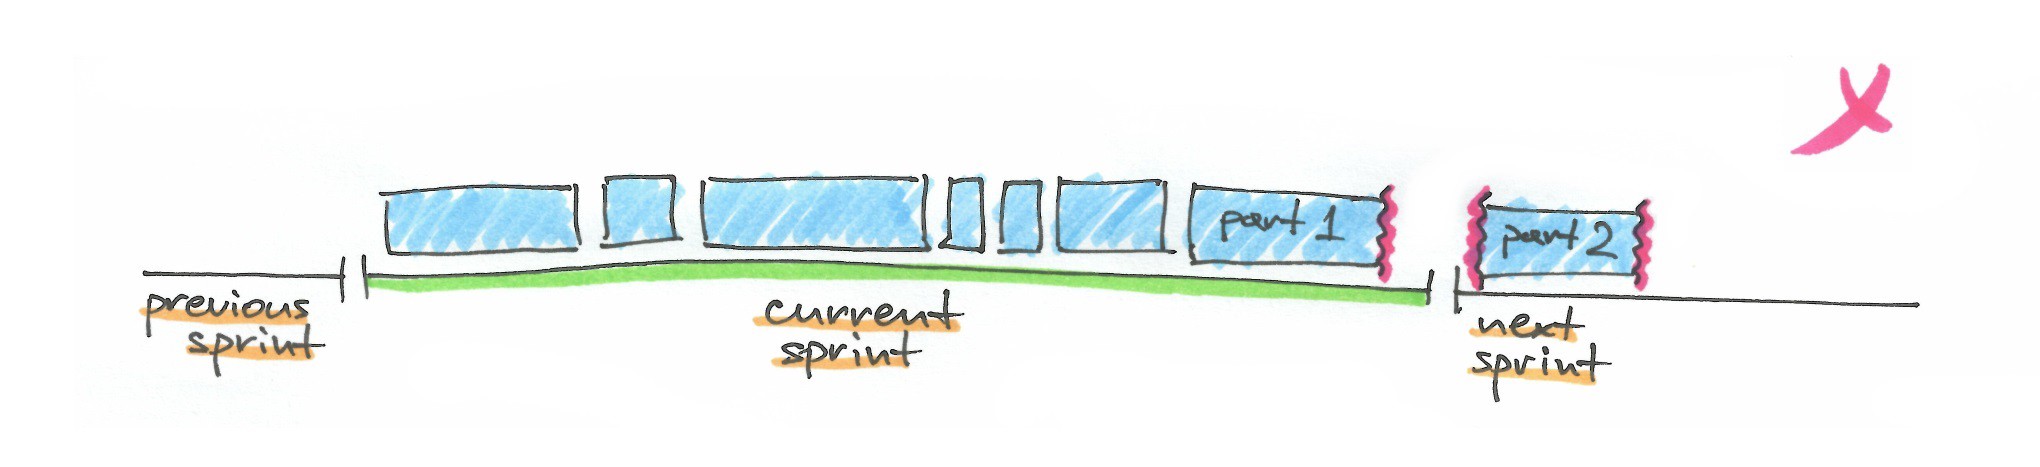 part 1
part 2
previous
sprint
current
sprint
next
sprint